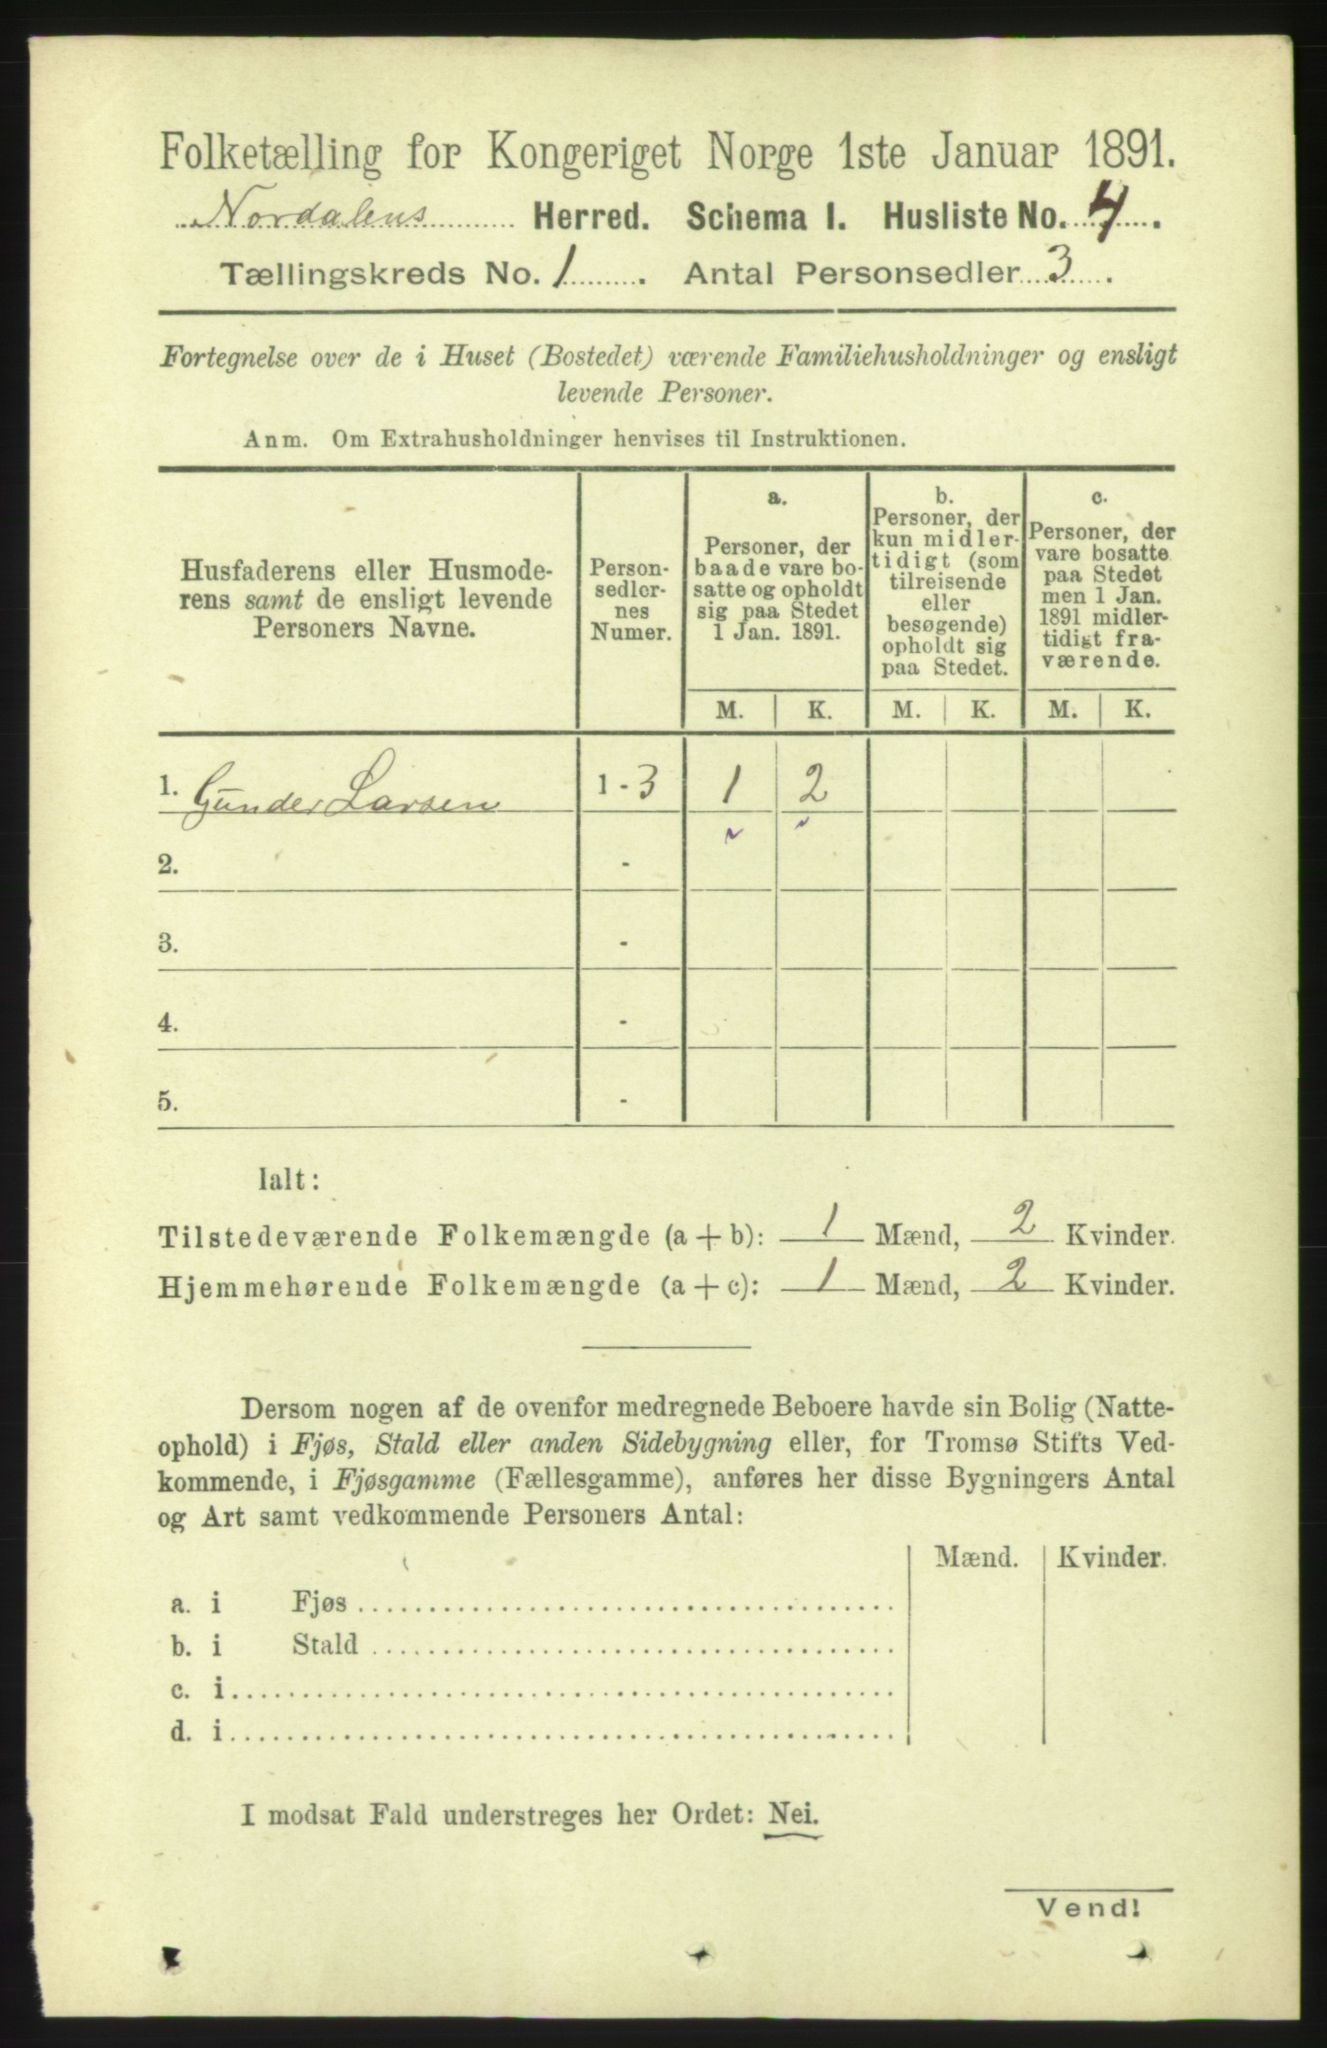 Folketælling for Kongeriget Norge 1ste Januar 1891.
Nordalens Herred. Schema I. Husliste No. 4.
Tællingskreds No. 1. Antal Personsedler 3.
Fortegnelse over de i Huset (Bostedet) værende Familiehusholdninger og ensligt
levende Personer.
Anm. Om Extrahusholdninger henvises til Instruktionen.
Husfaderens eller Husmode-
rens samt de ensligt levende
Personers Navne.
Person-
sedler-
nes
Numer.
a.
Personer, der
baade vare bo-
satte og opholdt
sig paa Stedet
1 Jan. 1891.
b.
Personer, der
kun midler-
tidigt (som
tilreisende
eller
besøgende)
opholdt sig
paa Stedet.
c.
Personer, der
vare bosatte
paa Stedet
men 1 Jan.
1891 midler-
tidigt fra-
værende.
M. K. M. K. M. K.
1. Gunder Larsen 1 - 3 1 2
2. -
3. -
4. -
5. -
Ialt:
Tilstedeværende Folkemængde (a + b): 1 Mænd, 2 Kvinder.
Hjemmehørende Folkemængde (a + c): 1 Mænd, 2 Kvinder.
Dersom nogen af de ovenfor medregnede Beboere havde sin Bolig (Natte-
ophold) i Fjøs, Stald eller anden Sidebygning eller, for Tromsø Stifts Ved-
kommende, i Fjøsgamme (Fællesgamme), anføres her disse Bygningers Antal
og Art samt vedkommende Personers Antal:
Mænd. Kvinder.
a. i Fjøs
b. i Stald
c. i
d. i
I modsat Fald understreges her Ordet: Nei.
Vend!